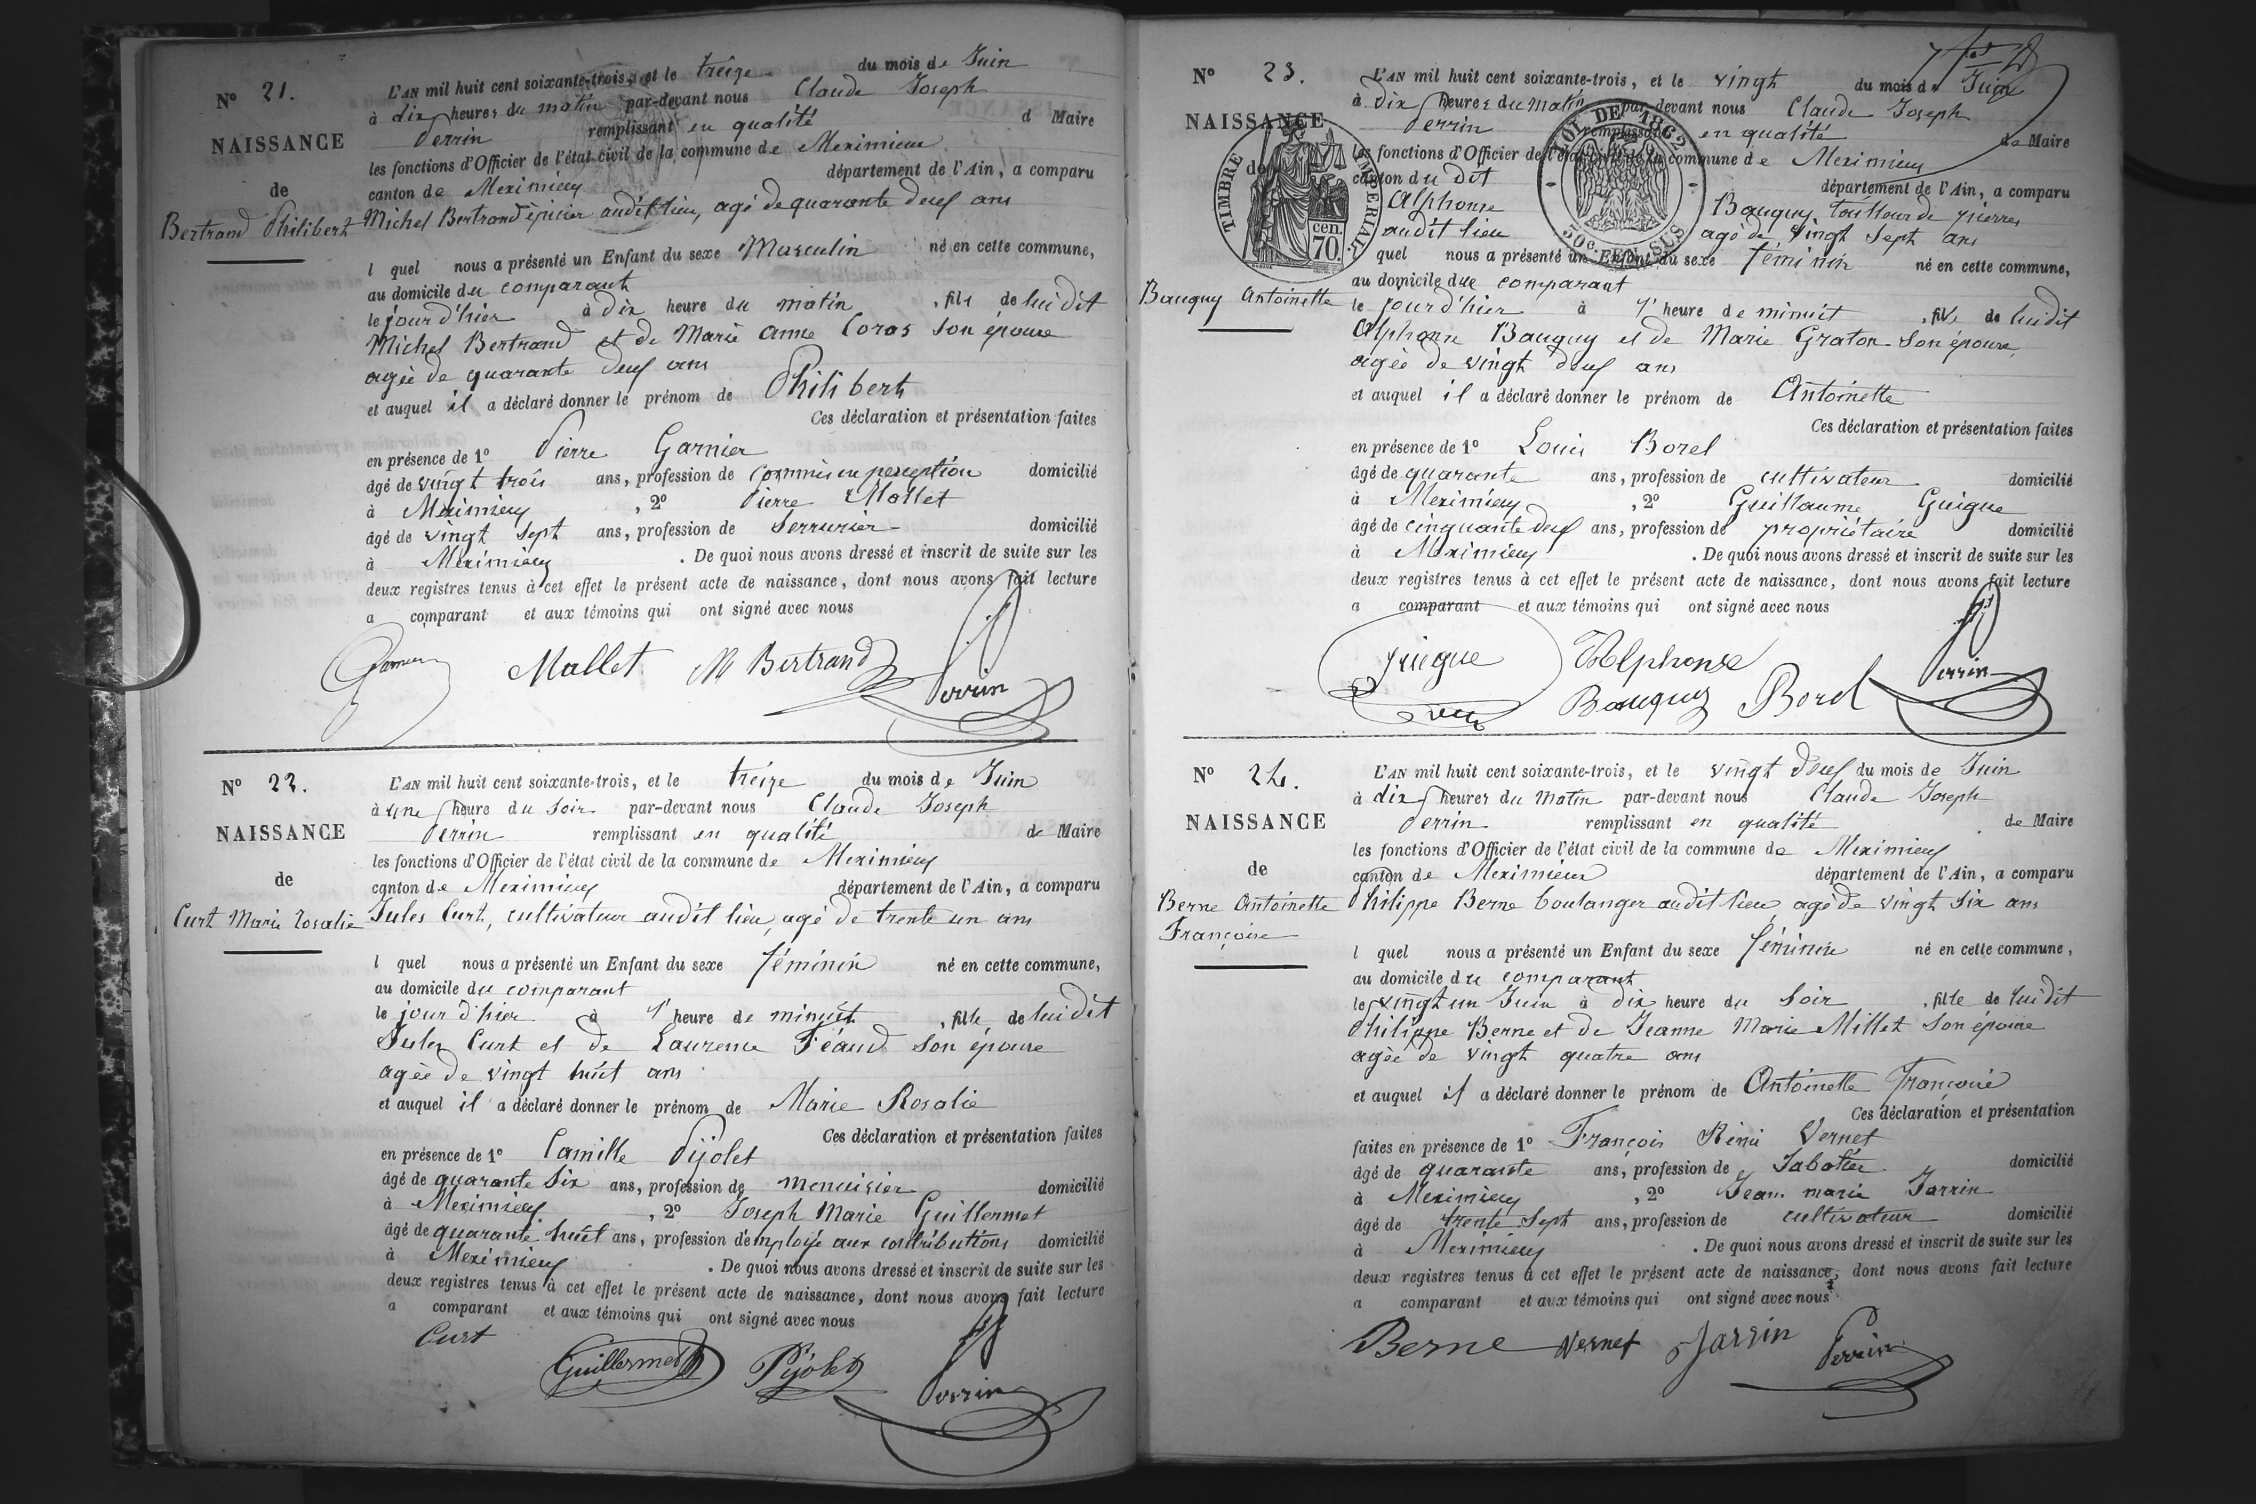 N° 21.
NAISSANCE
de
Bertrand Philibert
L'AN mil huit cent soixante-trois, et le treize du mois de Juin
à dix heures du matin par-devant nous Claude Joseph
Perrin remplissant en qualité d Maire
les fonctions d'Officier de l'état civil de la commune de Meximieux
canton de Meximieux département de l'Ain, a comparu
Michel Bertrand épicier audit lieu, agé de quarante deux ans
l quel nous a présenté un Enfant du sexe Masculin né en cette commune,
au domicile du comparant
le jour d'hier à dix heure du matin, fils de lui dit
Michel Bertrand et de Marie Anne Coros son épouse
agée de quarante deux ans
et auquel il a déclaré donner le prénom de Philibert
Ces déclaration et présentation faites
en présence de 1° Pierre Garnier
âgé de vingt trois ans, profession de commis en perception domicilié
à Meximieux, 2° Pierre Mallet
âgé de vingt sept ans, profession de Serrurier domicilié
à Meximieux. De quoi nous avons dressé et inscrit de suite sur les
deux registres tenus à cet effet le présent acte de naissance, dont nous avons fait lecture
a comparant et aux témoins qui ont signé avec nous
Garnier Mallet M Bertrand Perrin
N° 22.
NAISSANCE
de
Curt Marie Rosalie
L'AN mil huit cent soixante-trois, et le treize du mois de Juin
à une heure du soir par-devant nous Claude Joseph
Perrin remplissant en qualité de Maire
les fonctions d'Officier de l'état civil de la commune de Meximieux
canton de Meximieux département de l'Ain, a comparu
Jules Curt, cultivateur audit lieu, agé de trente un ans
l quel nous a présenté un Enfant du sexe féminin né en cette commune,
au domicile du comparant
le jour d'hier à l' heure de minuit, fille de lui dit
Jules Curt et de Laurence Féaud son épouse
agée de vingt huit ans
et auquel il a déclaré donner le prénom de Marie Rosalie
Ces déclaration et présentation faites
en présence de 1° Camille Pijolet
âgé de quarante six ans, profession de menuisier domicilié
à Meximieux, 2° Joseph Marie Guillermet
âgé de quarante huit ans, profession d'employé aux contributions domicilié
à Meximieux. De quoi nous avons dressé et inscrit de suite sur les
deux registres tenus à cet effet le présent acte de naissance, dont nous avons fait lecture
a comparant et aux témoins qui ont signé avec nous
Curt Guillermet Pijolet Perrin
N° 23.
NAISSANCE
de
Bauguy Antoinette
TIMBRE IMPERIAL
70 cen.
LOI DE 1862
50c. EN SUS
L'AN mil huit cent soixante-trois, et le vingt du mois de Juin
à dix heures du matin par-devant nous Claude Joseph
Perrin remplissant en qualité de Maire
les fonctions d'Officier de l'état civil de la commune de Meximieux
canton du dit département de l'Ain, a comparu
Alphonse Bauguy, tailleur de pierres
audit lieu agé de vingt sept ans
quel nous a présenté un Enfant du sexe féminin né en cette commune,
au domicile du comparant
le jour d'hier à l' heure de minuit, fille de lui dit
Alphonse Bauguy et de Marie Graton son épouse,
agée de vingt deux ans
et auquel il a déclaré donner le prénom de Antoinette
Ces déclaration et présentation faites
en présence de 1° Louis Borel
âgé de quarante ans, profession de cultivateur domicilié
à Meximieux, 2° Guillaume Guigue
âgé de cinquante deux ans, profession de propriétaire domicilié
à Meximieux. De quoi nous avons dressé et inscrit de suite sur les
deux registres tenus à cet effet le présent acte de naissance, dont nous avons fait lecture
a comparant et aux témoins qui ont signé avec nous
Guigue Alphonse Bauguy Borel Perrin
N° 24.
NAISSANCE
de
Berne Antoinette
Françoise
L'AN mil huit cent soixante-trois, et le vingt deux du mois de Juin
à dix heures du matin par-devant nous Claude Joseph
Perrin remplissant en qualité de Maire
les fonctions d'Officier de l'état civil de la commune de Meximieux
canton de Meximieux département de l'Ain, a comparu
Philippe Berne boulanger audit lieu agé de vingt six ans
l quel nous a présenté un Enfant du sexe féminin né en cette commune,
au domicile du comparant
le vingt un Juin à dix heure du soir, fille de lui dit
Philippe Berne et de Jeanne Marie Millet son épouse
agée de vingt quatre ans
et auquel il a déclaré donner le prénom de Antoinette Françoise
Ces déclaration et présentation
faites en présence de 1° François Réné Vernet
âgé de quarante ans, profession de Sabotier domicilié
à Meximieux, 2° Jean marie Jarrin
âgé de trente sept ans, profession de cultivateur domicilié
à Meximieux. De quoi nous avons dressé et inscrit de suite sur les
deux registres tenus à cet effet le présent acte de naissance, dont nous avons fait lecture
a comparant et aux témoins qui ont signé avec nous
Berne Vernet Jarrin Perrin